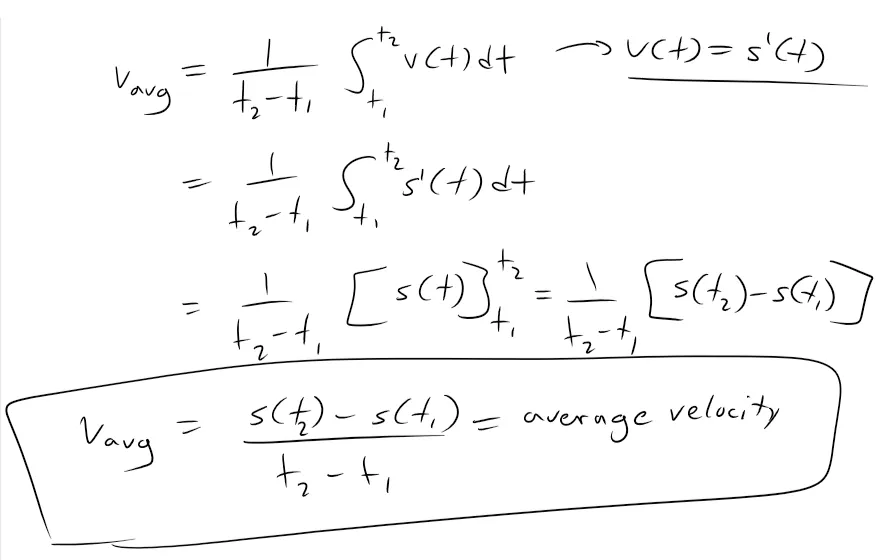 v_avg = 1/(t₂-t₁) ∫_{t₁}^{t₂} v(t)dt → v(t) = s'(t)
= 1/(t₂-t₁) ∫_{t₁}^{t₂} s'(t)dt
= 1/(t₂-t₁) [s(t)]_{t₁}^{t₂} = 1/(t₂-t₁) [s(t₂)-s(t₁)]
v_avg = (s(t₂) - s(t₁))/(t₂ - t₁) = average velocity